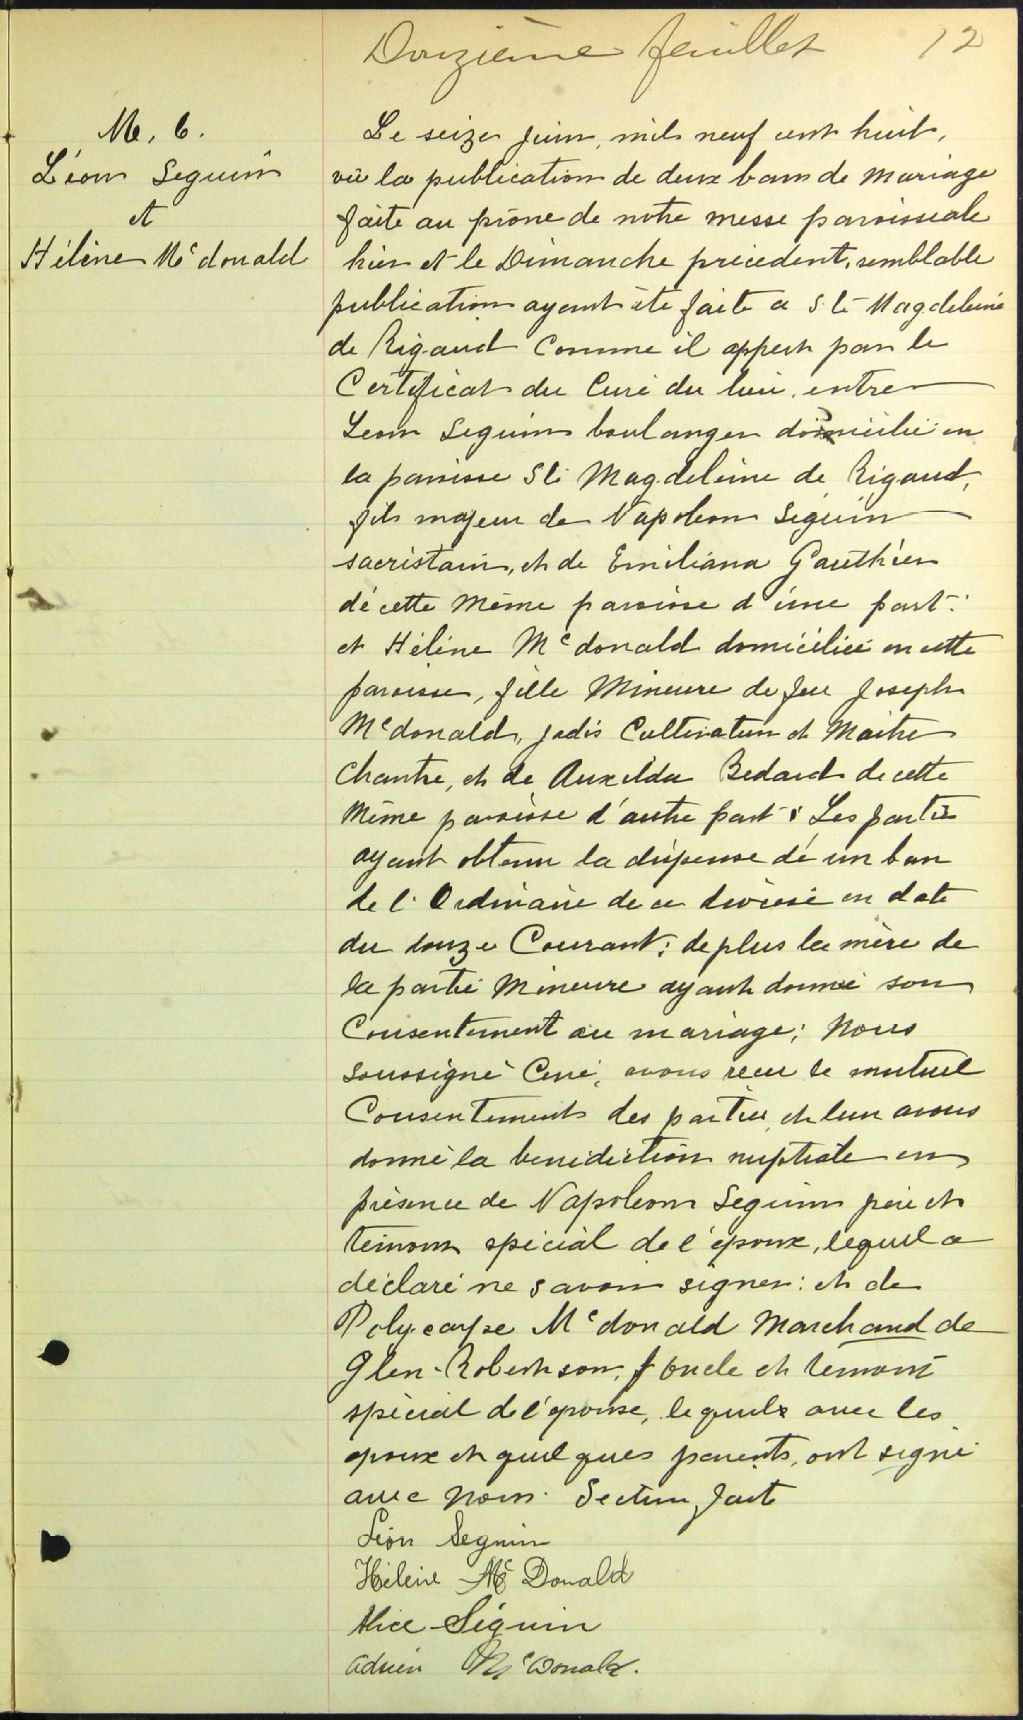 Douzième feuillet 12
M. 6.
Léon Seguin
et
Hélène Mcdonald
Le seize juin, mil neuf cent huit,
vu la publication de deux bans de mariage
faite au prône de notre messe paroissiale
hier et le Dimanche précédent, semblable
publication ayant été faite a Ste Magdeleine
de Rigaud Comme il appert par le
Certificat du Curé du lieu, entre
Leon Seguin boulanger domicilié en
la paroisse Ste Magdeleine de Rigaud,
fils majeur de Napoleon Seguin
sacristain, et de Emiliana Gauthier
de cette même paroisse d'une part:
et Hélène Mcdonald domiciliée en cette
paroisse, fille Mineure de feu Joseph
Mcdonald, jadis Cultivateur et Maitre
Chantre, et de Auxilda Bedard de cette
même paroisse d'autre part: Les parties
ayant obtenu la dispense de un ban
de l'Ordinaire de ce diocèse en date
du douze Courant; de plus la mère de
la partie Mineure ayant donné son
Consentement au mariage; Nous
soussigné Curé, avons reçu le mutuel
Consentement des parties et leur avons
donné la bénédiction nuptiale en
présence de Napoleon Seguin père et
témoin spécial de l'époux, lequel a
déclaré ne savoir signer: et de
Polycarpe Mcdonald Marchand de
Glen-Robertson, oncle et témoin
spécial de l'épouse, lequel avec les
époux et quelques parents, ont signé
avec nous. Lecture faite
Léon Seguin
Hélène Mc Donald
Alice Séguin
Adrien McDonald.